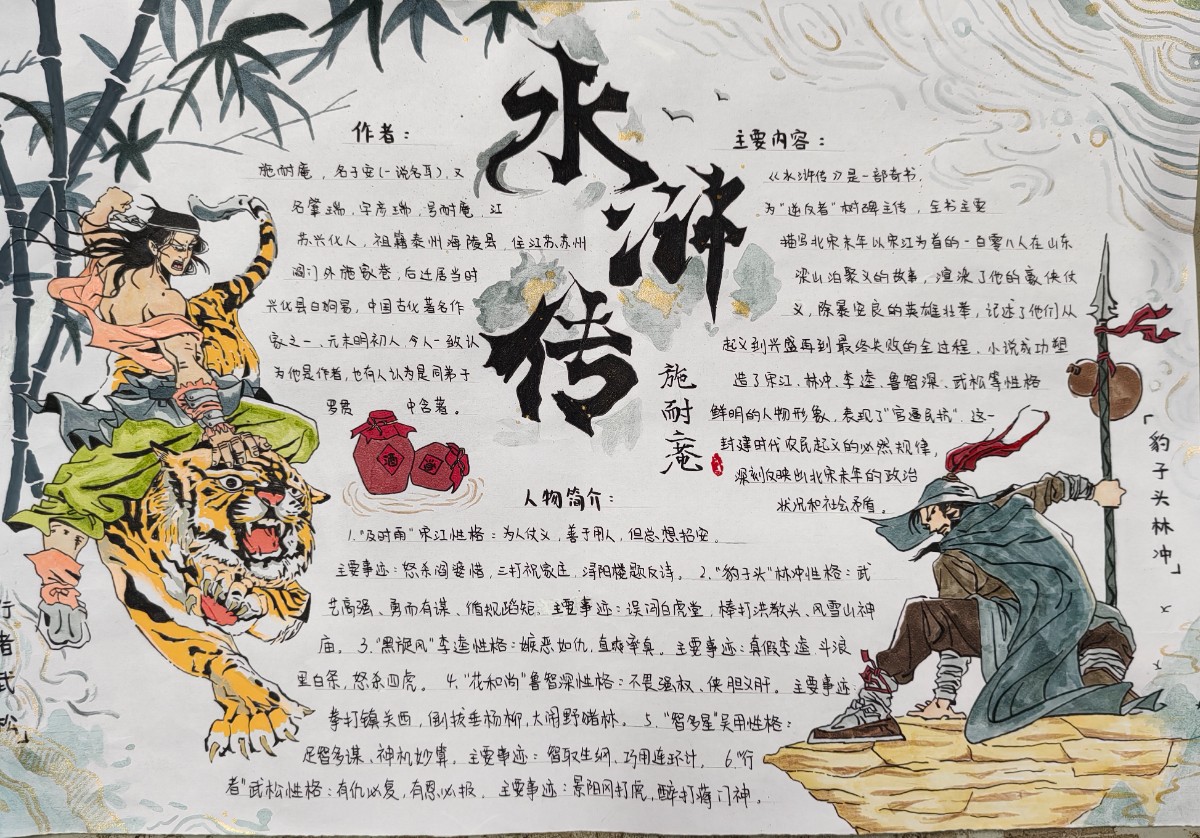 水浒传
施耐庵
作者：
施耐庵，名子安(一说名耳)，又
名肇瑞，字彦瑞，号耐庵，江
苏兴化人，祖籍泰州海陵县，住江苏苏州
阊门外施家巷，后迁居当时
兴化县白驹场，中国古代著名作
家之一、元末明初人，今人一致认
为他是作者，也有人认为是同弟子
罗贯 中合著。
酒
主要内容：
《水浒传》是一部奇书，
为“逆反者”树碑立传，全书主要
描写北宋末年以宋江为首的一百零八人在山东
梁山泊聚义的故事，渲染了他的豪侠仗
义，除暴安良的英雄壮举，记述了他们从
起义到兴盛再到最终失败的全过程，小说成功塑
造了宋江、林冲、李逵、鲁智深、武松等性格
鲜明的人物形象，表现了“官逼民抗”，这一
封建时代农民起义的必然规律，
深刻反映出北宋末年的政治
状况和社会矛盾。
人物简介：
1.“及时雨”宋江性格：为人仗义，善于用人，但总想招安。
主要事迹：怒杀阎婆惜，三打祝家庄，浔阳楼题反诗。 2.“豹子头”林冲性格：武
艺高强、勇而有谋、循规蹈矩。主要事迹：误闯白虎堂，棒打洪教头、风雪山神
庙。 3.“黑旋风”李逵性格：嫉恶如仇，直爽率真。 主要事迹：真假李逵、斗浪
里白条，怒杀四虎。 4.“花和尚”鲁智深性格：不畏强权、侠胆义肝。 主要事迹
拳打镇关西，倒拔垂杨柳，大闹野猪林。 5.“智多星”吴用性格：
足智多谋、神机妙算。 主要事迹：智取生纲、巧用连环计。 6.“行
者”武松性格：有仇必复，有恩必报。 主要事迹：景阳冈打虎，醉打蒋门神。
行者武松」
「豹子头林冲」